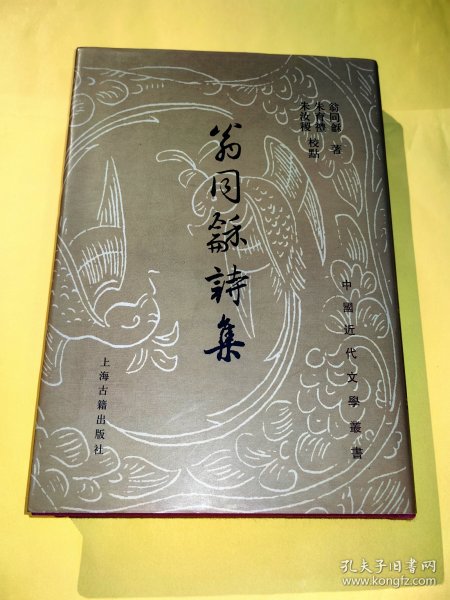 翁同龢 著
朱育禮
朱汝稷 校點
翁同龢詩集
中國近代文學叢書
上海古籍出版社
孔夫子旧书网
www.kongfz.com